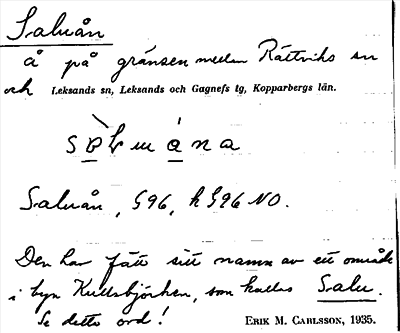 Saluån
å på gränsen mellan Rättviks sn
och Leksands sn, Leksands och Gagnefs tg, Kopparbergs län.
Saluån, 596, k 596 NO.
Den har fått sitt namn av ett område
i byn Kullsbjörken, som kallas Salu.
Se detta ord!
ERIK M. CARLSSON, 1935.